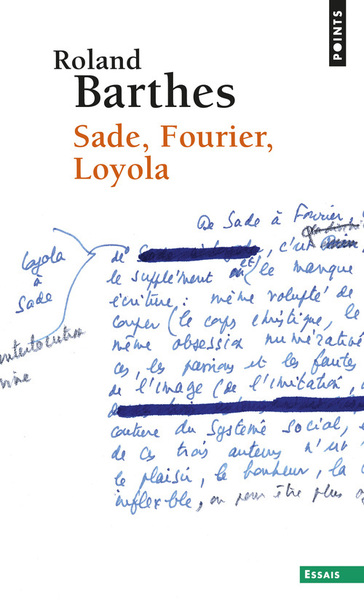 POINTS
Roland
Barthes
Sade, Fourier,
Loyola
De Sade à Fourier,
Loyola
à
Sade
de
le supplément le manque
écriture : même volupté de
couper (le corps christique, le
même obsession numérative
ces, les passions et les fautes
de l'image (de l'imitation,
couture du système social,
de ces trois auteurs n'
le plaisir, le bonheur, la
inflexible, ou peut être plus
ESSAIS